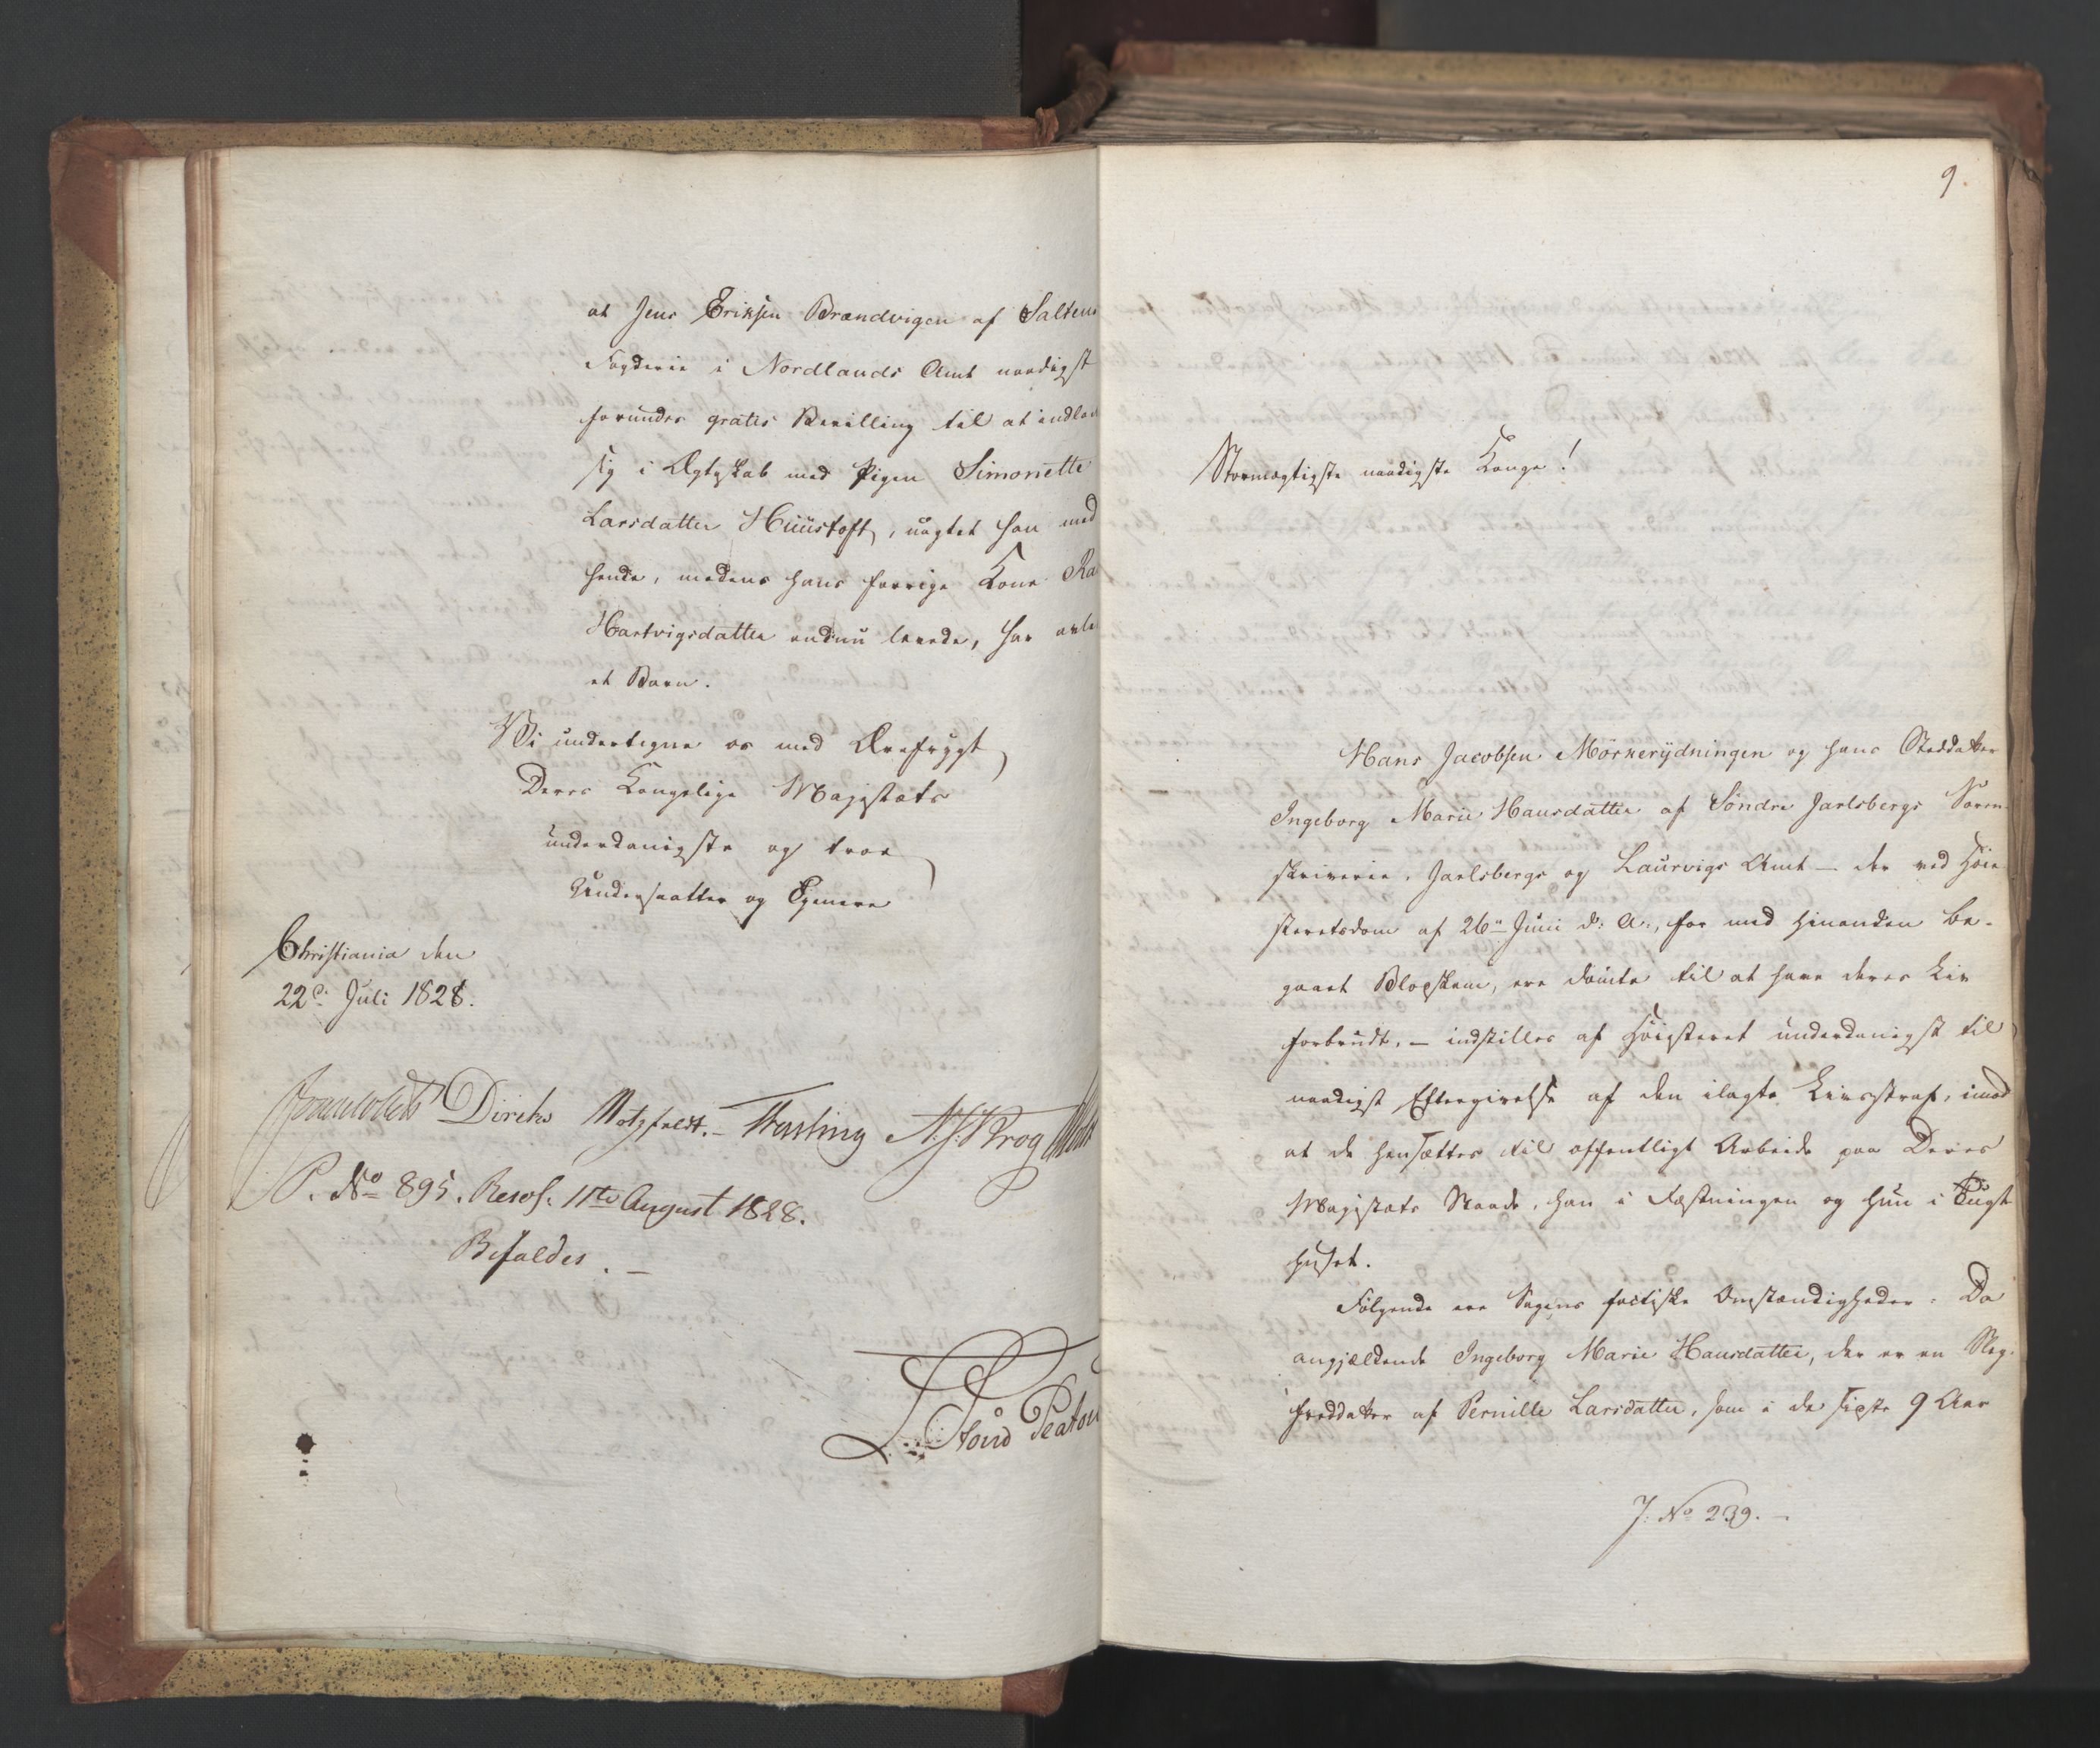 at Jens Eriksen Brændvigen af Saltens
Fogderie i Nordlands Amt naadigst
forundes gratis Bevilling til at indlade
sig i Ægteskab med Pigen Simonette
Larsdatter Huustoft, uagtet han med
hende, medens hans forrige Kone
Hartvigsdatter endnu levede, har avlet
et Barn.
Vi undertegne os med Ærefrygt
Deres Kongelige Majestæts
underdanigste og troe
Undersaatter og Tjenere
Christiania den
22de Juli 1828.
Diriks Motzfeldt. Fasting N. J. Krog
P. No 895. Resol: 11te August 1828.
Bifaldes.
9.
Stormægtigste naadigste Konge!
Hans Jacobsen Mörkerÿdningen og hans Steddatter
Ingeborg Marie Hansdatter af Söndre Jarlsbergs Soren-
skriverie, Jarlsbergs og Laurvigs Amt – der ved Höie-
steretsdom af 26de Juni d: A:, for med hinanden be-
gaaet Blodskam, ere dömte til at have deres Liv
forbrudt, – indstilles af Höiesteret underdanigst til
naadigst Eftergivelse af den ilagte Livsstraf, imod
at de hensættes til offentligt Arbeide paa Deres
Majestæts Naade, han i Fæstningen og hun i Tugt-
huset.
Fölgende ere Sagens factiske Omstændigheder. Da
angjældende Ingeborg Marie Hansdatter, der er en Sleg-
freddatter af Pernille Larsdatter, som i de sidste 9 Aar
J. No 239. –